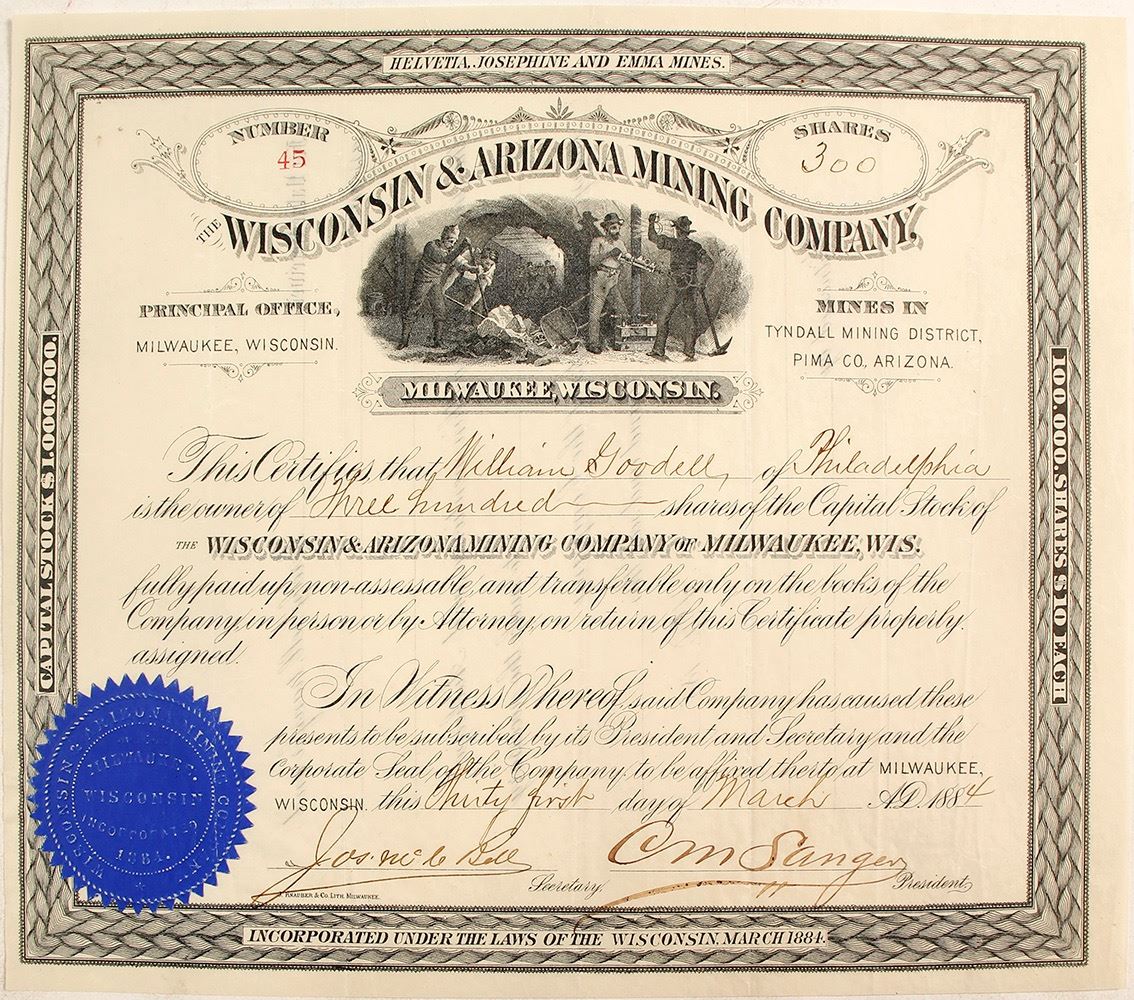 HELVETIA, JOSEPHINE AND EMMA MINES.
NUMBER
45
SHARES
300
THE WISCONSIN & ARIZONA MINING COMPANY,
PRINCIPAL OFFICE,
MILWAUKEE, WISCONSIN.
MINES IN
TYNDALL MINING DISTRICT,
PIMA CO., ARIZONA.
MILWAUKEE, WISCONSIN.
CAPITAL STOCK $1,000,000.
100,000. SHARES $10 EACH
This Certifies, that William Goodell, of Philadelphia
is the owner of Three hundred shares of the Capital Stock of
THE WISCONSIN & ARIZONA MINING COMPANY OF MILWAUKEE, WIS.
fully paid up, non-assessable, and transferable only on the books of the
Company, in person or by Attorney, on return of this Certificate properly
assigned.
In Witness Whereof, said Company has caused these
presents to be subscribed by its President and Secretary and the
Corporate Seal of the Company, to be affixed therto at MILWAUKEE,
WISCONSIN, this Thirty first day of March A.D. 1884
WISCONSIN & ARIZONA MINING
MILWAUKEE,
WISCONSIN
1884.
Jos. McC Bell
Secretary.
C M Sanger
President,
KNAUBER & CO. LITH. MILWAUKEE.
INCORPORATED UNDER THE LAWS OF THE WISCONSIN, MARCH 1884.